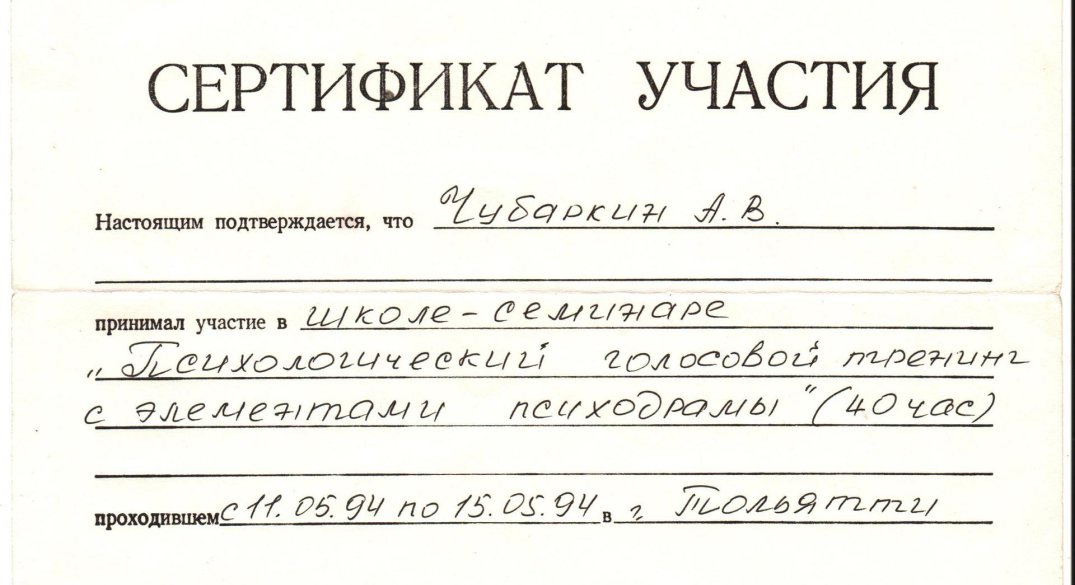 СЕРТИФИКАТ УЧАСТИЯ
Настоящим подтверждается, что Чубаркин А.В.
принимал участие в школе-семинаре
„Психологический голосовой тренинг
с элементами психодрамы" (40 час)
проходившем с 11.05.94 по 15.05.94 в г Тольятти